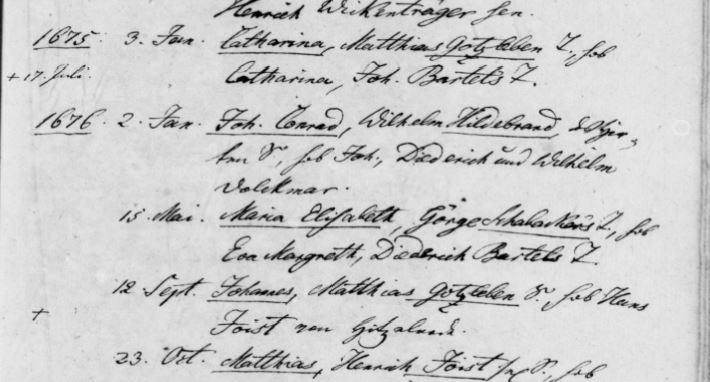 Henrich Wickenträger sen.
1675 3. Jan. Catharina, Matthias Götzleben T., hob
+ 17. Juli. Catharina, Joh. Bartels T.
1676 2. Jan. Joh. Conrad, Wilhelm Hildebrand,
S., hob Joh., Diederich und Wilhelm
Volckmar.
15. Mai. Maria Elisabeth, Görge Schalacker's T., hob
Eva Margreth, Diederich Bartels T.
12. Sept. Johannes, Matthias Götzleben S. hob Hans
+ Joist von
23. Oct. Matthias, Henrich Joist S., hob